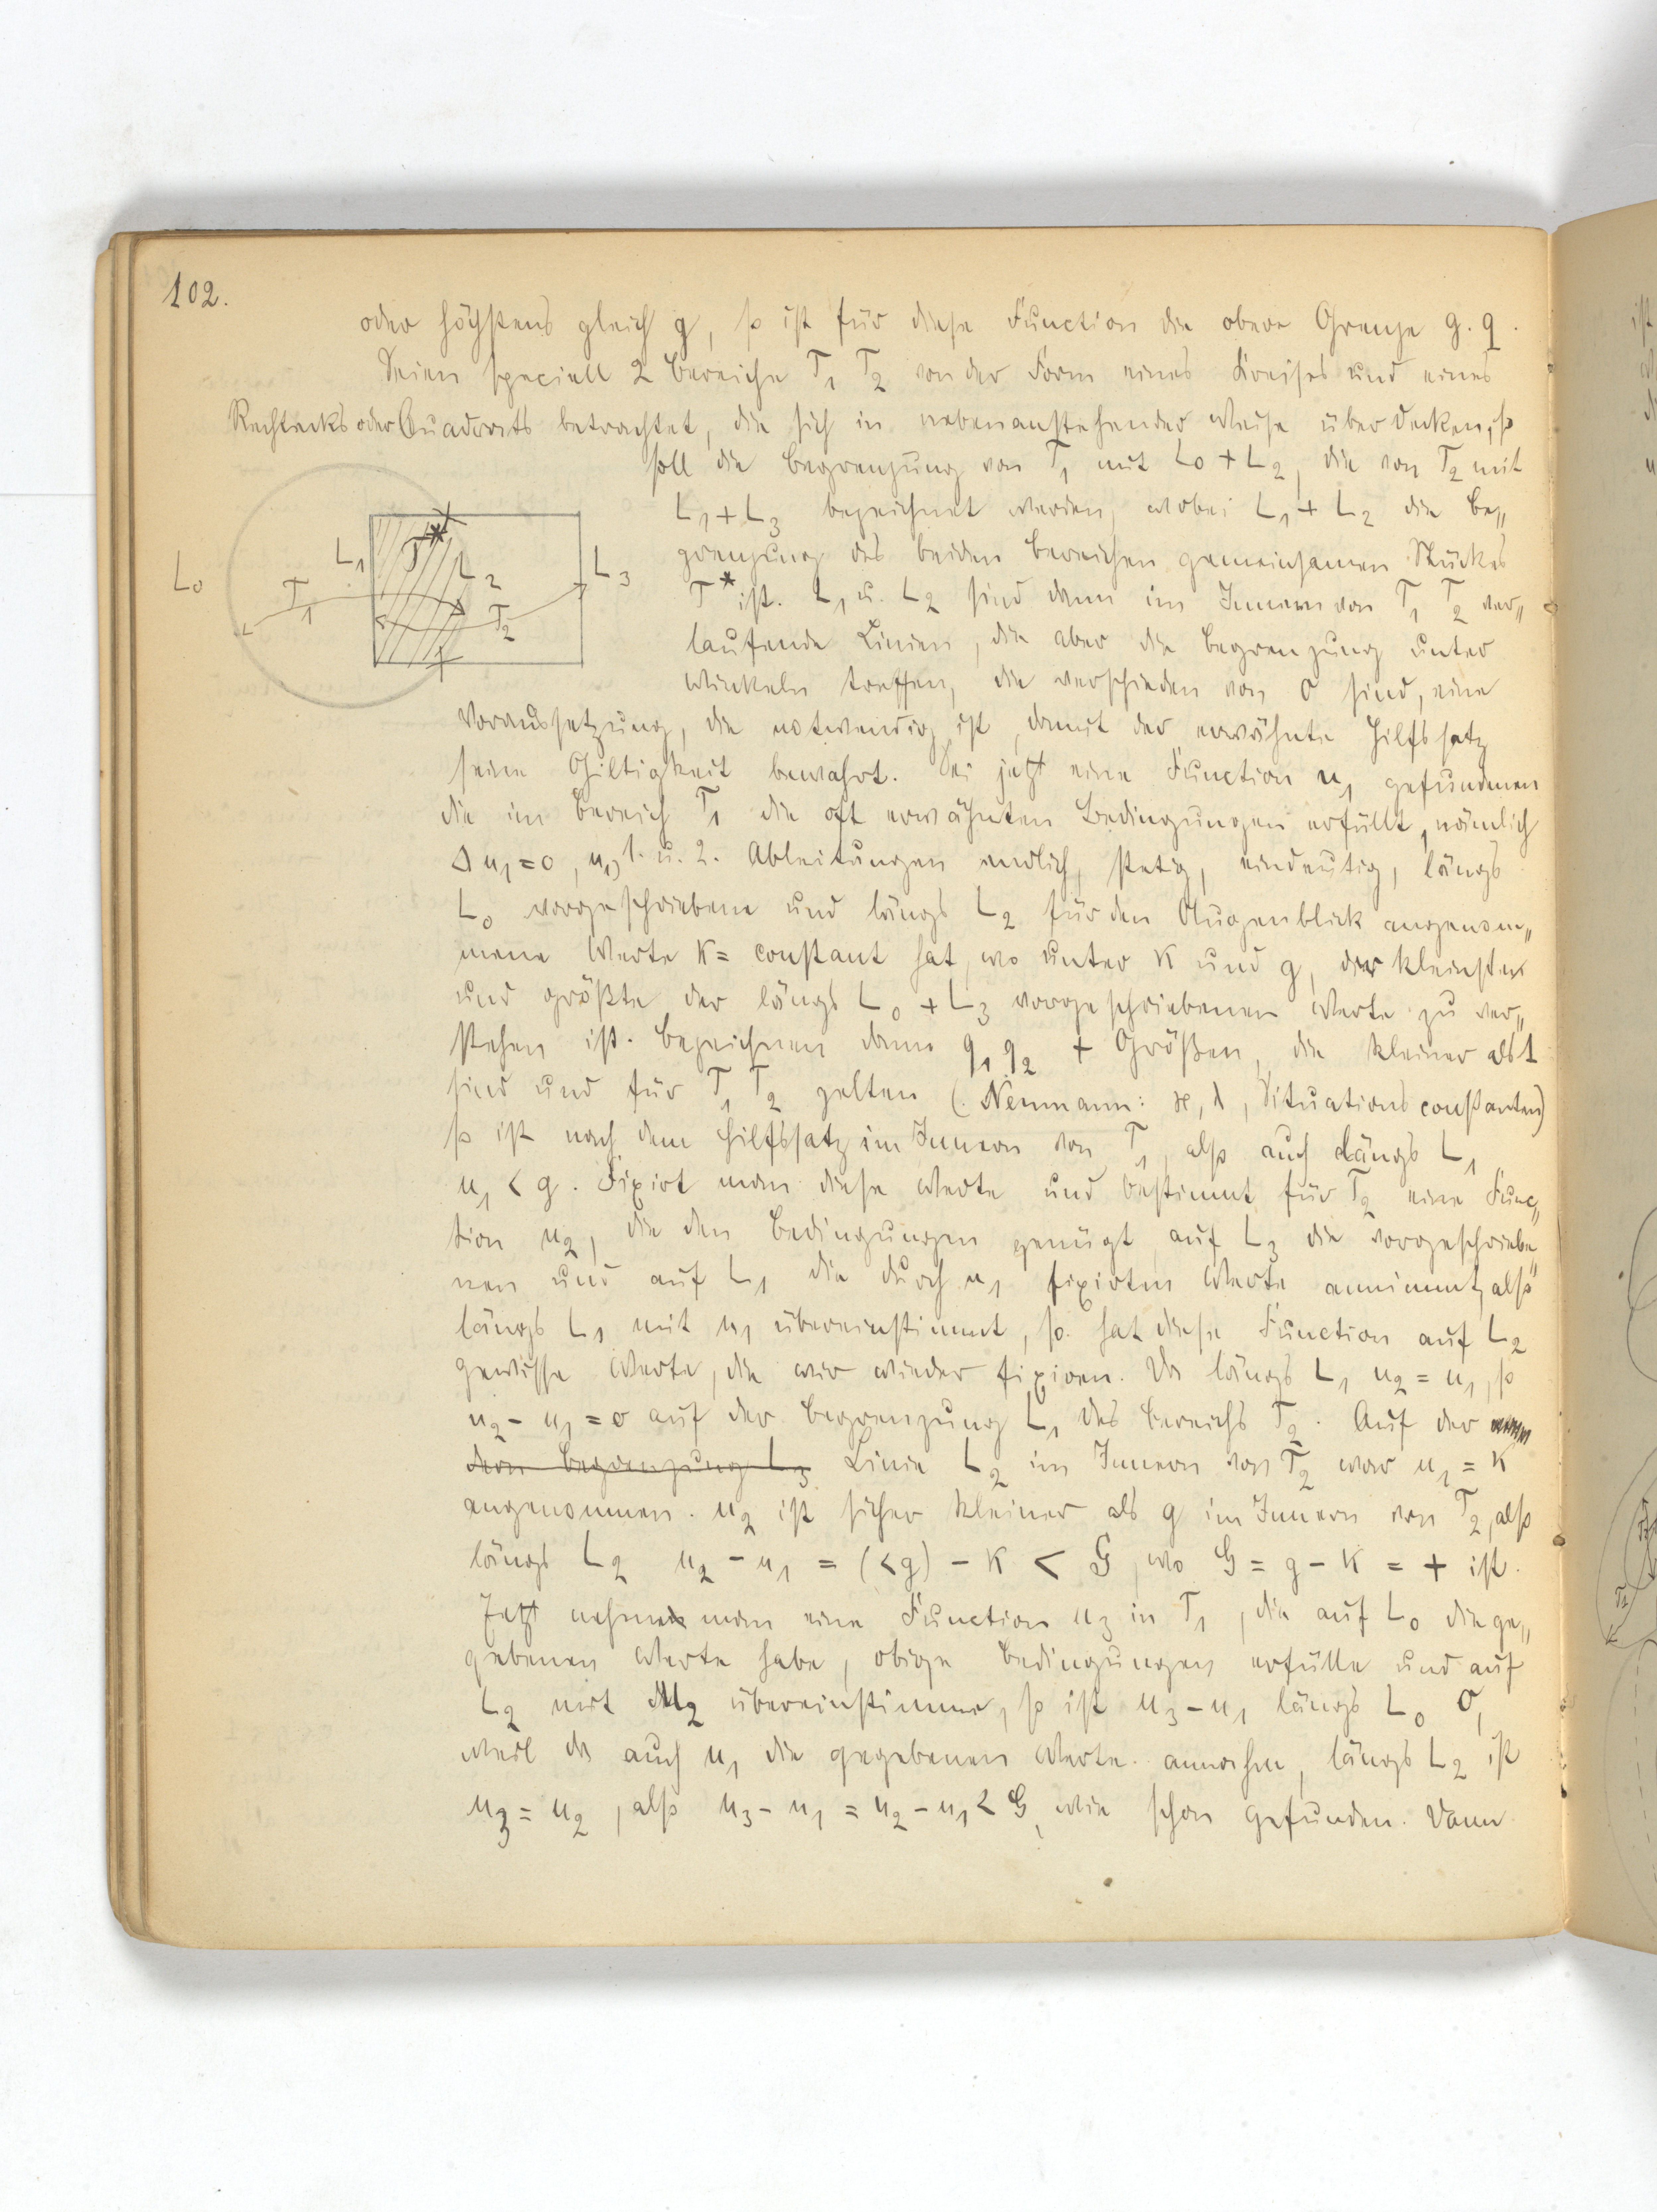 102.
oder höchstens gleich g, so ist für diese Function die obere Grenze g. q.
Seien speciell 2 Bereiche T₁ T₂ von der Form eines Kreises und eines
Rechtecks oder Quadrats betrachtet, die sich in nebenanstehender Weise überdecken, so
soll die Begrenzung von T₁ mit L₀ + L₂, die von T₂ mit
L₁ + L₃ bezeichnet werden, wobei L₁ + L₂ die Be„
grenzung des beiden Bereichen gemeinsamen Stückes
T* ist. L₁ u. L₂ sind dann im Innern von T₁ T₂ ver„
laufende Linien, die aber die Begrenzung unter
Winkeln treffen, die verschieden von 0 sind, eine
Voraussetzung, die notwendig ist, damit der erwähnte Hilfssatz
seine Giltigkeit bewahrt. Sei jetzt eine Function u₁ gefunden
die im Bereich T₁ die oft erwähnten Bedingungen erfüllt, nämlich
Δu₁ = 0, u₁, 1. u. 2. Ableitungen endlich, stetig, eindeutig, längs
L₀ vorgeschriebene und längs L₂ für den Augenblick angenom„
mene Werte K = constant hat, wo unter K und g, der kleinste
und größte der längs L₀ + L₃ vorgeschriebenen Werte zu ver„
stehen ist. Bezeichnen dann q₁ q₂ + Größen, die kleiner als 1
sind und für T₁ T₂ gelten (Neumann: ϰ, λ, Situationsconstanten)
so ist nach dem Hilfssatz im Innern von T₁, also auch längs L₁
u₁ < g. Fixirt man diese Werte und bestimmt für T₂ eine Func„
tion u₂, die den Bedingungen genügt auf L₃ die vorgeschriebe„
nen und auf L₁ die durch u₁ fixirten Werte annimmt, also
längs L₁ mit u₁ übereinstimmt, so hat diese Function auf L₂
gewisse Werte, die wir wieder fixiren. Da längs L₁ u₂ = u₁, so
u₂ - u₁ = 0 auf der Begrenzung L₁ des Bereichs T₂. Auf der
dern Begrenzung L₃ Linie L₂ im Innern von T₂ war u₁ = K
angenommen. u₂ ist sicher kleiner als g im Innern von T₂, also
längs L₂ u₂ - u₁ = (<g) - K < G, wo G = g - K = + ist.
Jetzt nehme man eine Function u₃ in T₁, die auf L₀ die ge„
gebenen Werte habe, obige Bedingungen erfülle und auf
L₂ mit u₂ übereinstimme, so ist u₃ - u₁ längs L₀ 0,
weil da auch u₁ die gegebenen Werte annahm, längs L₂ ist
u₃ = u₂, also u₃ - u₁ = u₂ - u₁ < G, wie schon gefunden. Dann
L₀
T₁
L₁
T*
L₂
T₂
L₃